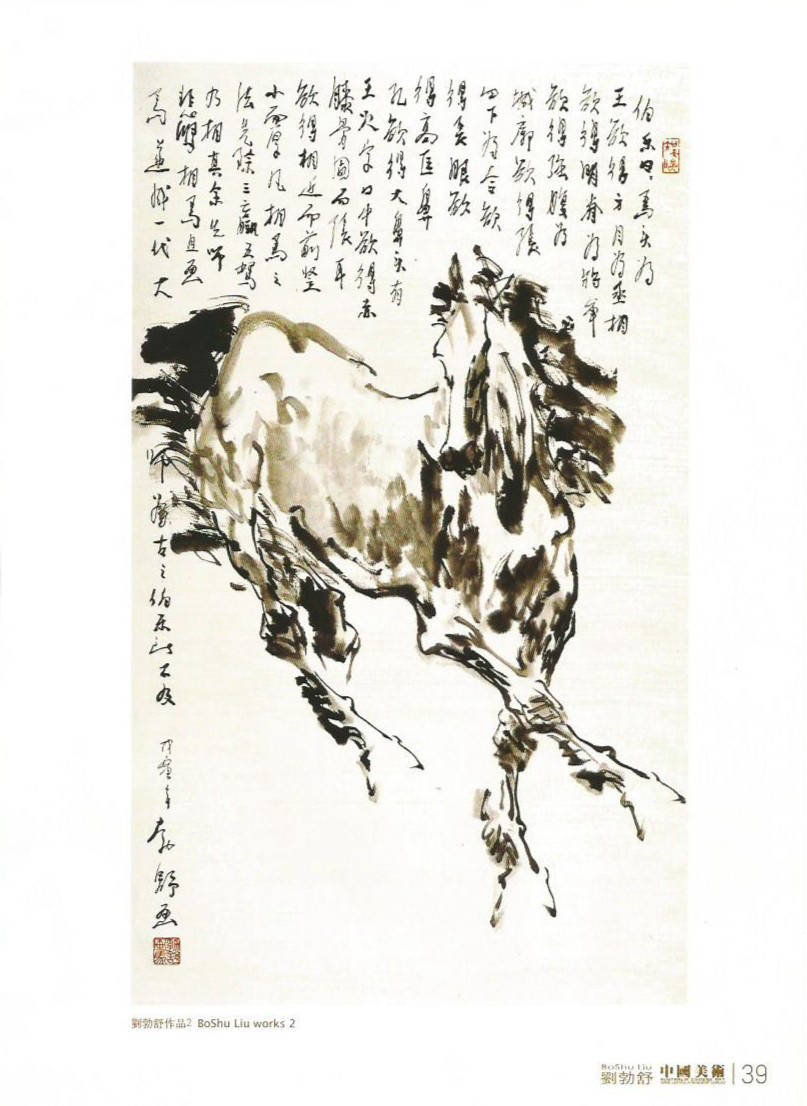 伯乐曰马头为
王欲得方目为丞相
欲得明脊为将军
欲得强腹为
城廓欲得张
四下为令欲
得长眼欲
得高匡鼻
孔欲得大鼻头有
王火字口中欲得赤
膝骨圆而张耳
欲得相近而前竖
小而厚凡相马之
法先除三羸五驽
乃相其余先师
悲鸿相马且画
马兼 一代大
师 古之伯乐 不及
戊寅年勃舒画
劉勃舒作品2 BoShu Liu works 2
BoShu Liu
劉勃舒 中國美術 39